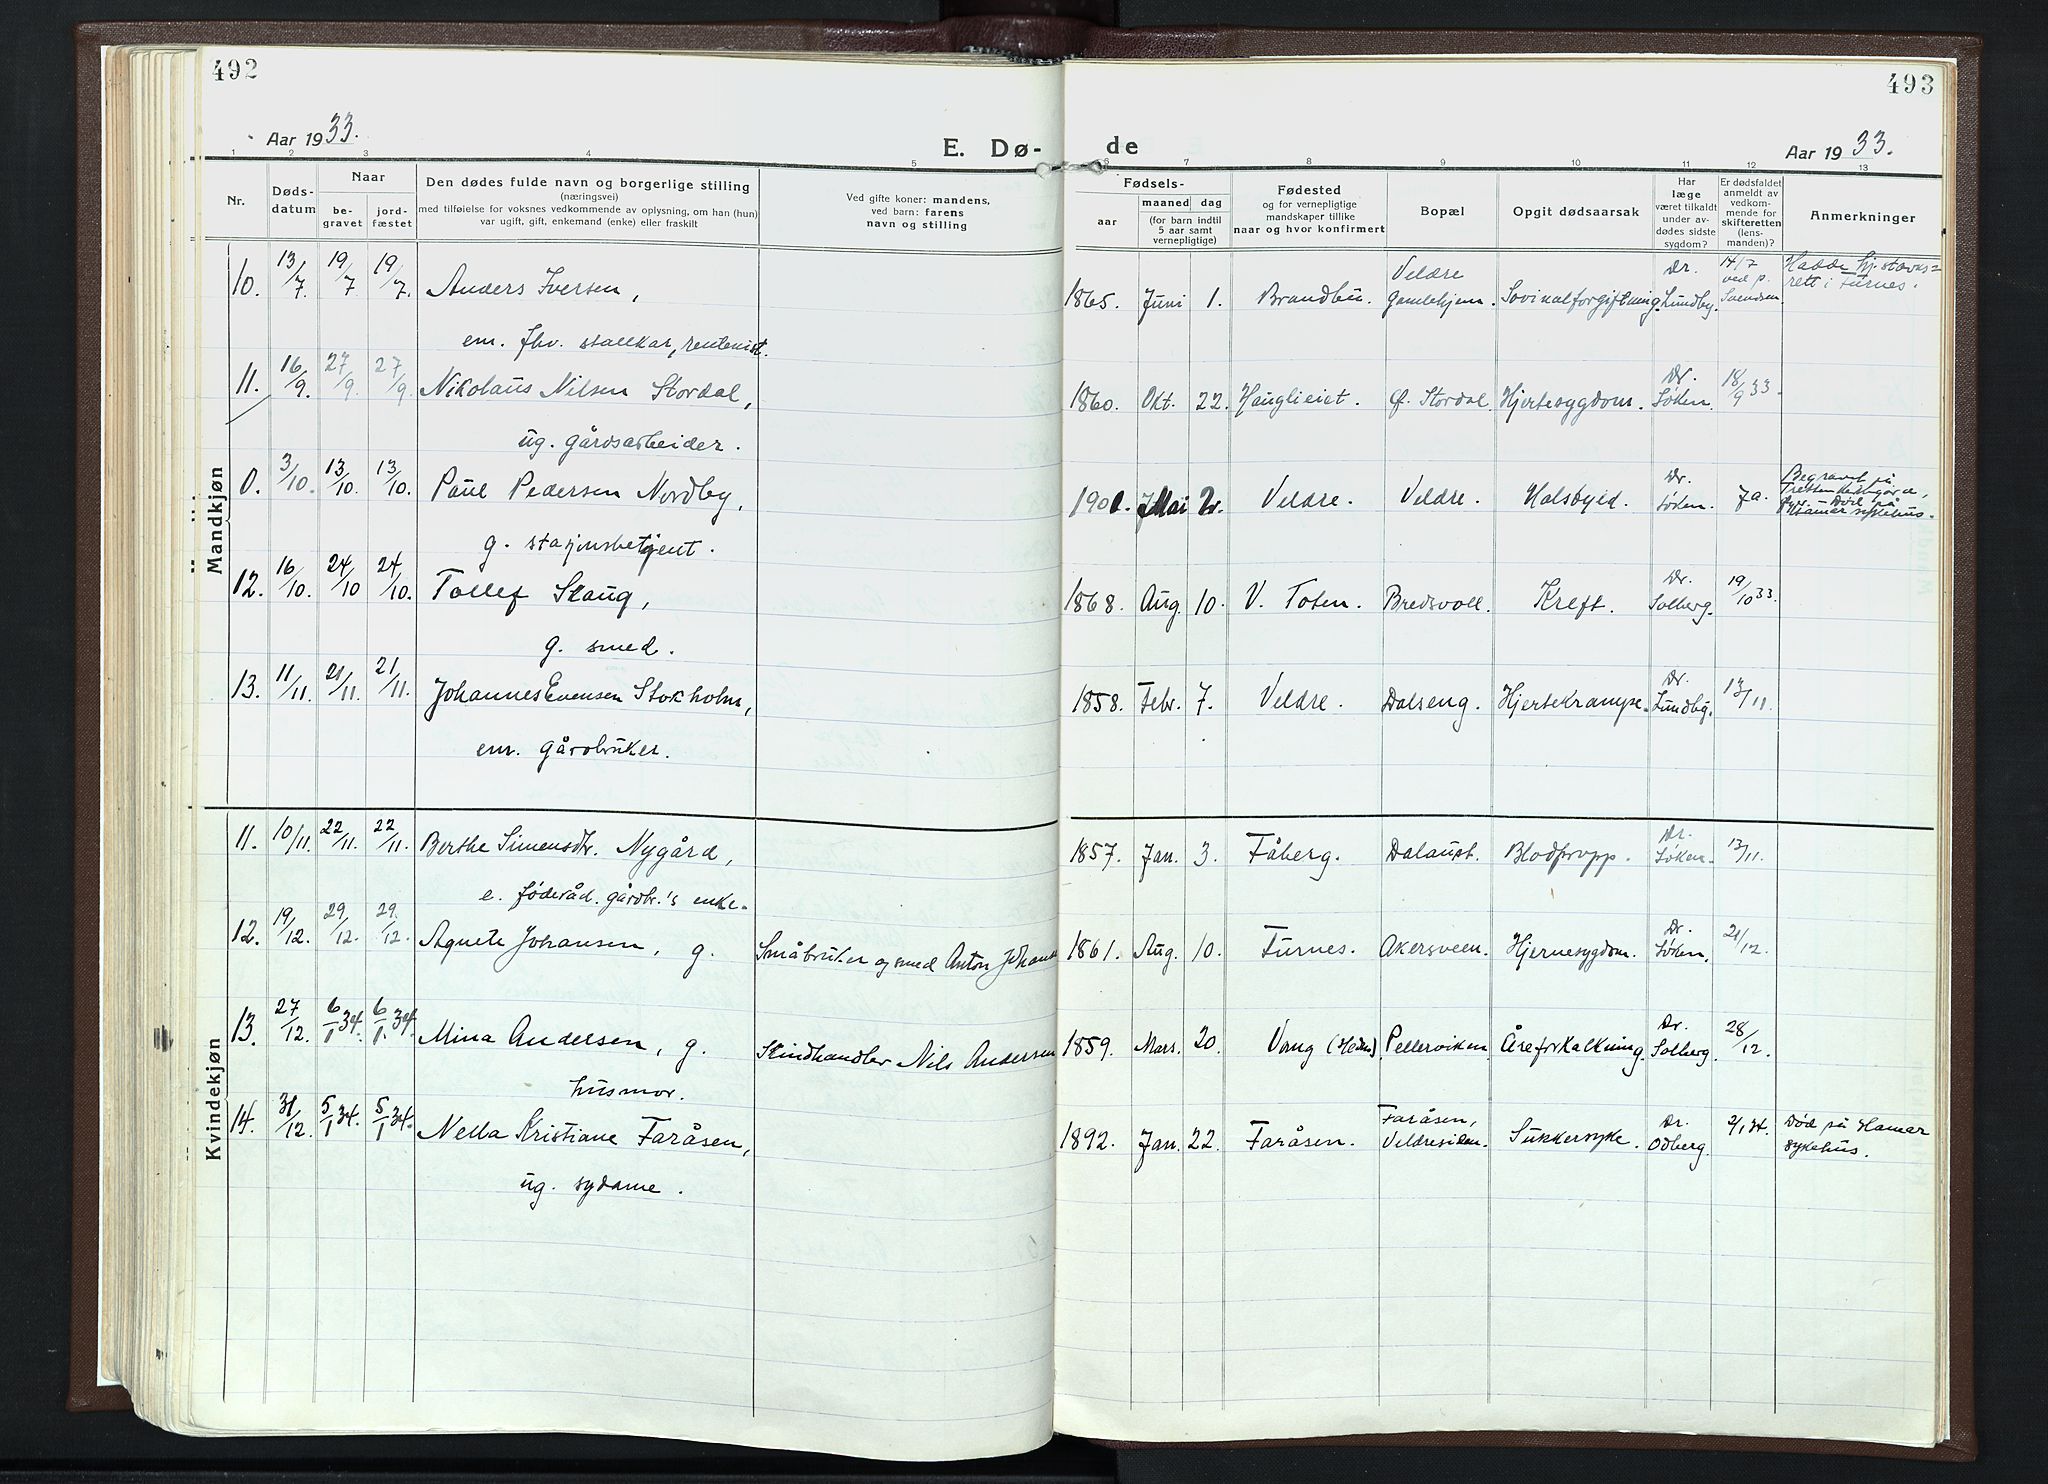 492
493
Aar 1933.
E. Dø-
de
Aar 1933.
1 2 3 4 5 6 7 8 9 10 11 12 13
Nr.
Døds-
datum
Naar
be-
gravet
jord-
fæstet
Den dødes fulde navn og borgerlige stilling
(næringsvei)
med tilføielse for voksnes vedkommende av oplysning, om han (hun)
var ugift, gift, enkemand (enke) eller fraskilt
Ved gifte koner: mandens,
ved barn: farens
navn og stilling
Fødsels-
aar
maaned dag
(for barn indtil
5 aar samt
vernepligtige)
Fødested
og for vernepligtige
mandskaper tillike
naar og hvor konfirmert
Bopæl
Opgit dødsaarsak
Har
læge
været tilkaldt
under av-
dødes sidste
sygdom?
Er dødsfaldet
anmeldt av
vedkom-
mende for
skifteretten
(lens-
manden)?
Anmerkninger
Mandkjøn
10. 13/7 19/7 19/7 Anders Iversen, 1865. Juni 1. Brandbu. Veldre Gamlehjem. Sovinalforgiftning. Dr. Lundby. 14/7 ved p. Svendsen Hadde hj.stavns=
rett i Furnes.
em. fhv. stallkar, rentenist.
11. 16/9. 27/9. 27/9. Nikolaus Nilsen Stordal, 1860. Okt. 22. Hauglieiet. Ø. Stordal. Hjertesygdom. Dr. Søken. 18/9 33.
ug. gårdsarbeider.
0. 3/10. 13/10. 13/10. Paul Pedersen Nordby, Mai 2. Veldre. Veldre. Halsbyld. Dr. Søken. Ja. Begravet på
Tretten kirkegård,
Død på
Hamar sykehus.
g. stasjonsbetjent.
12. 16/10. 24/10 24/10. Tollef Skaug, 1868. Aug. 10. V. Toten. Bredsvoll. Kreft. Dr. Solberg. 19/10 33.
g. smed.
13. 11/11. 21/11. 21/11. Johannes Evensen Stokholm, 1858. Febr. 7. Veldre. Dalseng. Hjertekrampe. Dr. Lundby. 13/11.
em. gårdbruker.
Kvindekjøn
11. 10/11. 22/11. 22/11. Berthe Simensdtr. Nygård, 1857. Jan. 3. Fåberg. Dalaust. Blodpropp. Dr. Søken. 13/11.
e. føderåd. gårdbr.'s enke.
12. 19/12. 29/12. 29/12. Agnete Johansen, g. Småbruker og smed Anton Johansen 1861. Aug. 10. Furnes. Akersveen. Hjernesygdom. Dr. Søken. 21/12.
13. 27/12. 6/1 34. 6/1. 34. Mina Andersen, g. Skindhandler Nils Andersen 1859. Mars. 20. Vang (Hedm). Pellerviken Åreforkalkning. Dr. Solberg. 28/12.
husmor.
14. 31/12. 5/1 34. 5/1 34. Nella Kristiane Faråsen, 1892. Jan. 22. Faråsen. Faråsen, Veldresiden. Sukkersyke. Dr. Odberg. 2/1 34. Død på Hamar
sykehus.
ug. sydame.